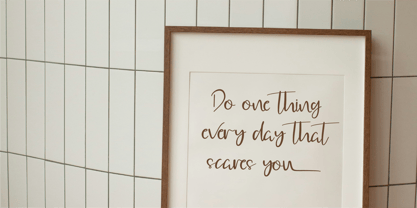 Do one thing
every day that
scares you